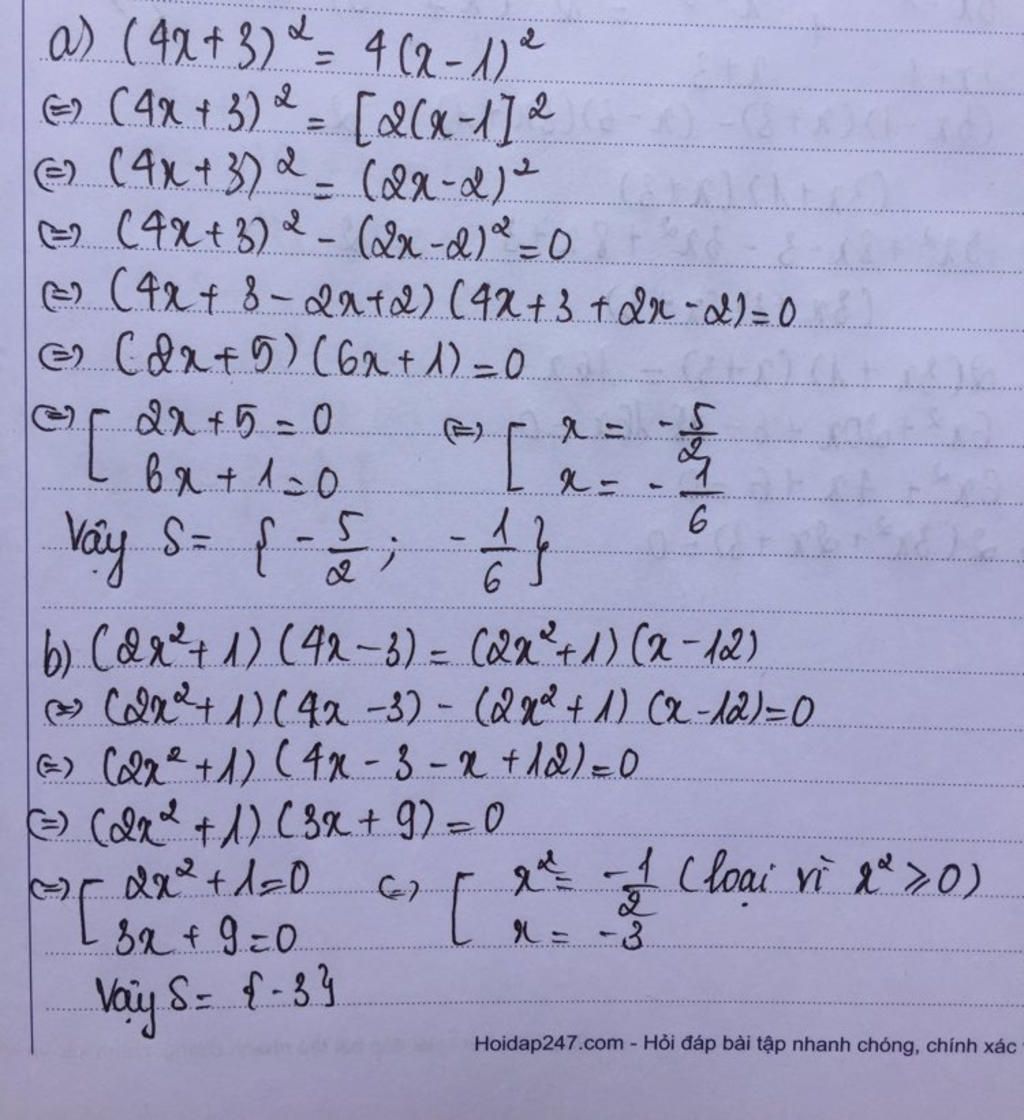 a) (4x+3)² = 4(x-1)²
(=) (4x+3)² = [2(x-1]²
(=) (4x+3)² = (2x-2)²
(=) (4x+3)² - (2x-2)² = 0
(=) (4x+3-2x+2)(4x+3+2x-2)=0
(=) (2x+5)(6x+1)=0
(=) [ 2x+5=0 (=) [ x = -5/2
6x+1=0 x = -1/6
Vậy S = { -5/2 ; -1/6 }
b) (2x²+1)(4x-3) = (2x²+1)(x-12)
(=) (2x²+1)(4x-3) - (2x²+1)(x-12)=0
(=) (2x²+1)(4x-3-x+12)=0
(=) (2x²+1)(3x+9)=0
(=) [ 2x²+1=0 (=) [ x² = -1/2 (loại vì x² ⩾ 0)
3x+9=0 x = -3
Vậy S = {-3}
Hoidap247.com - Hỏi đáp bài tập nhanh chóng, chính xác